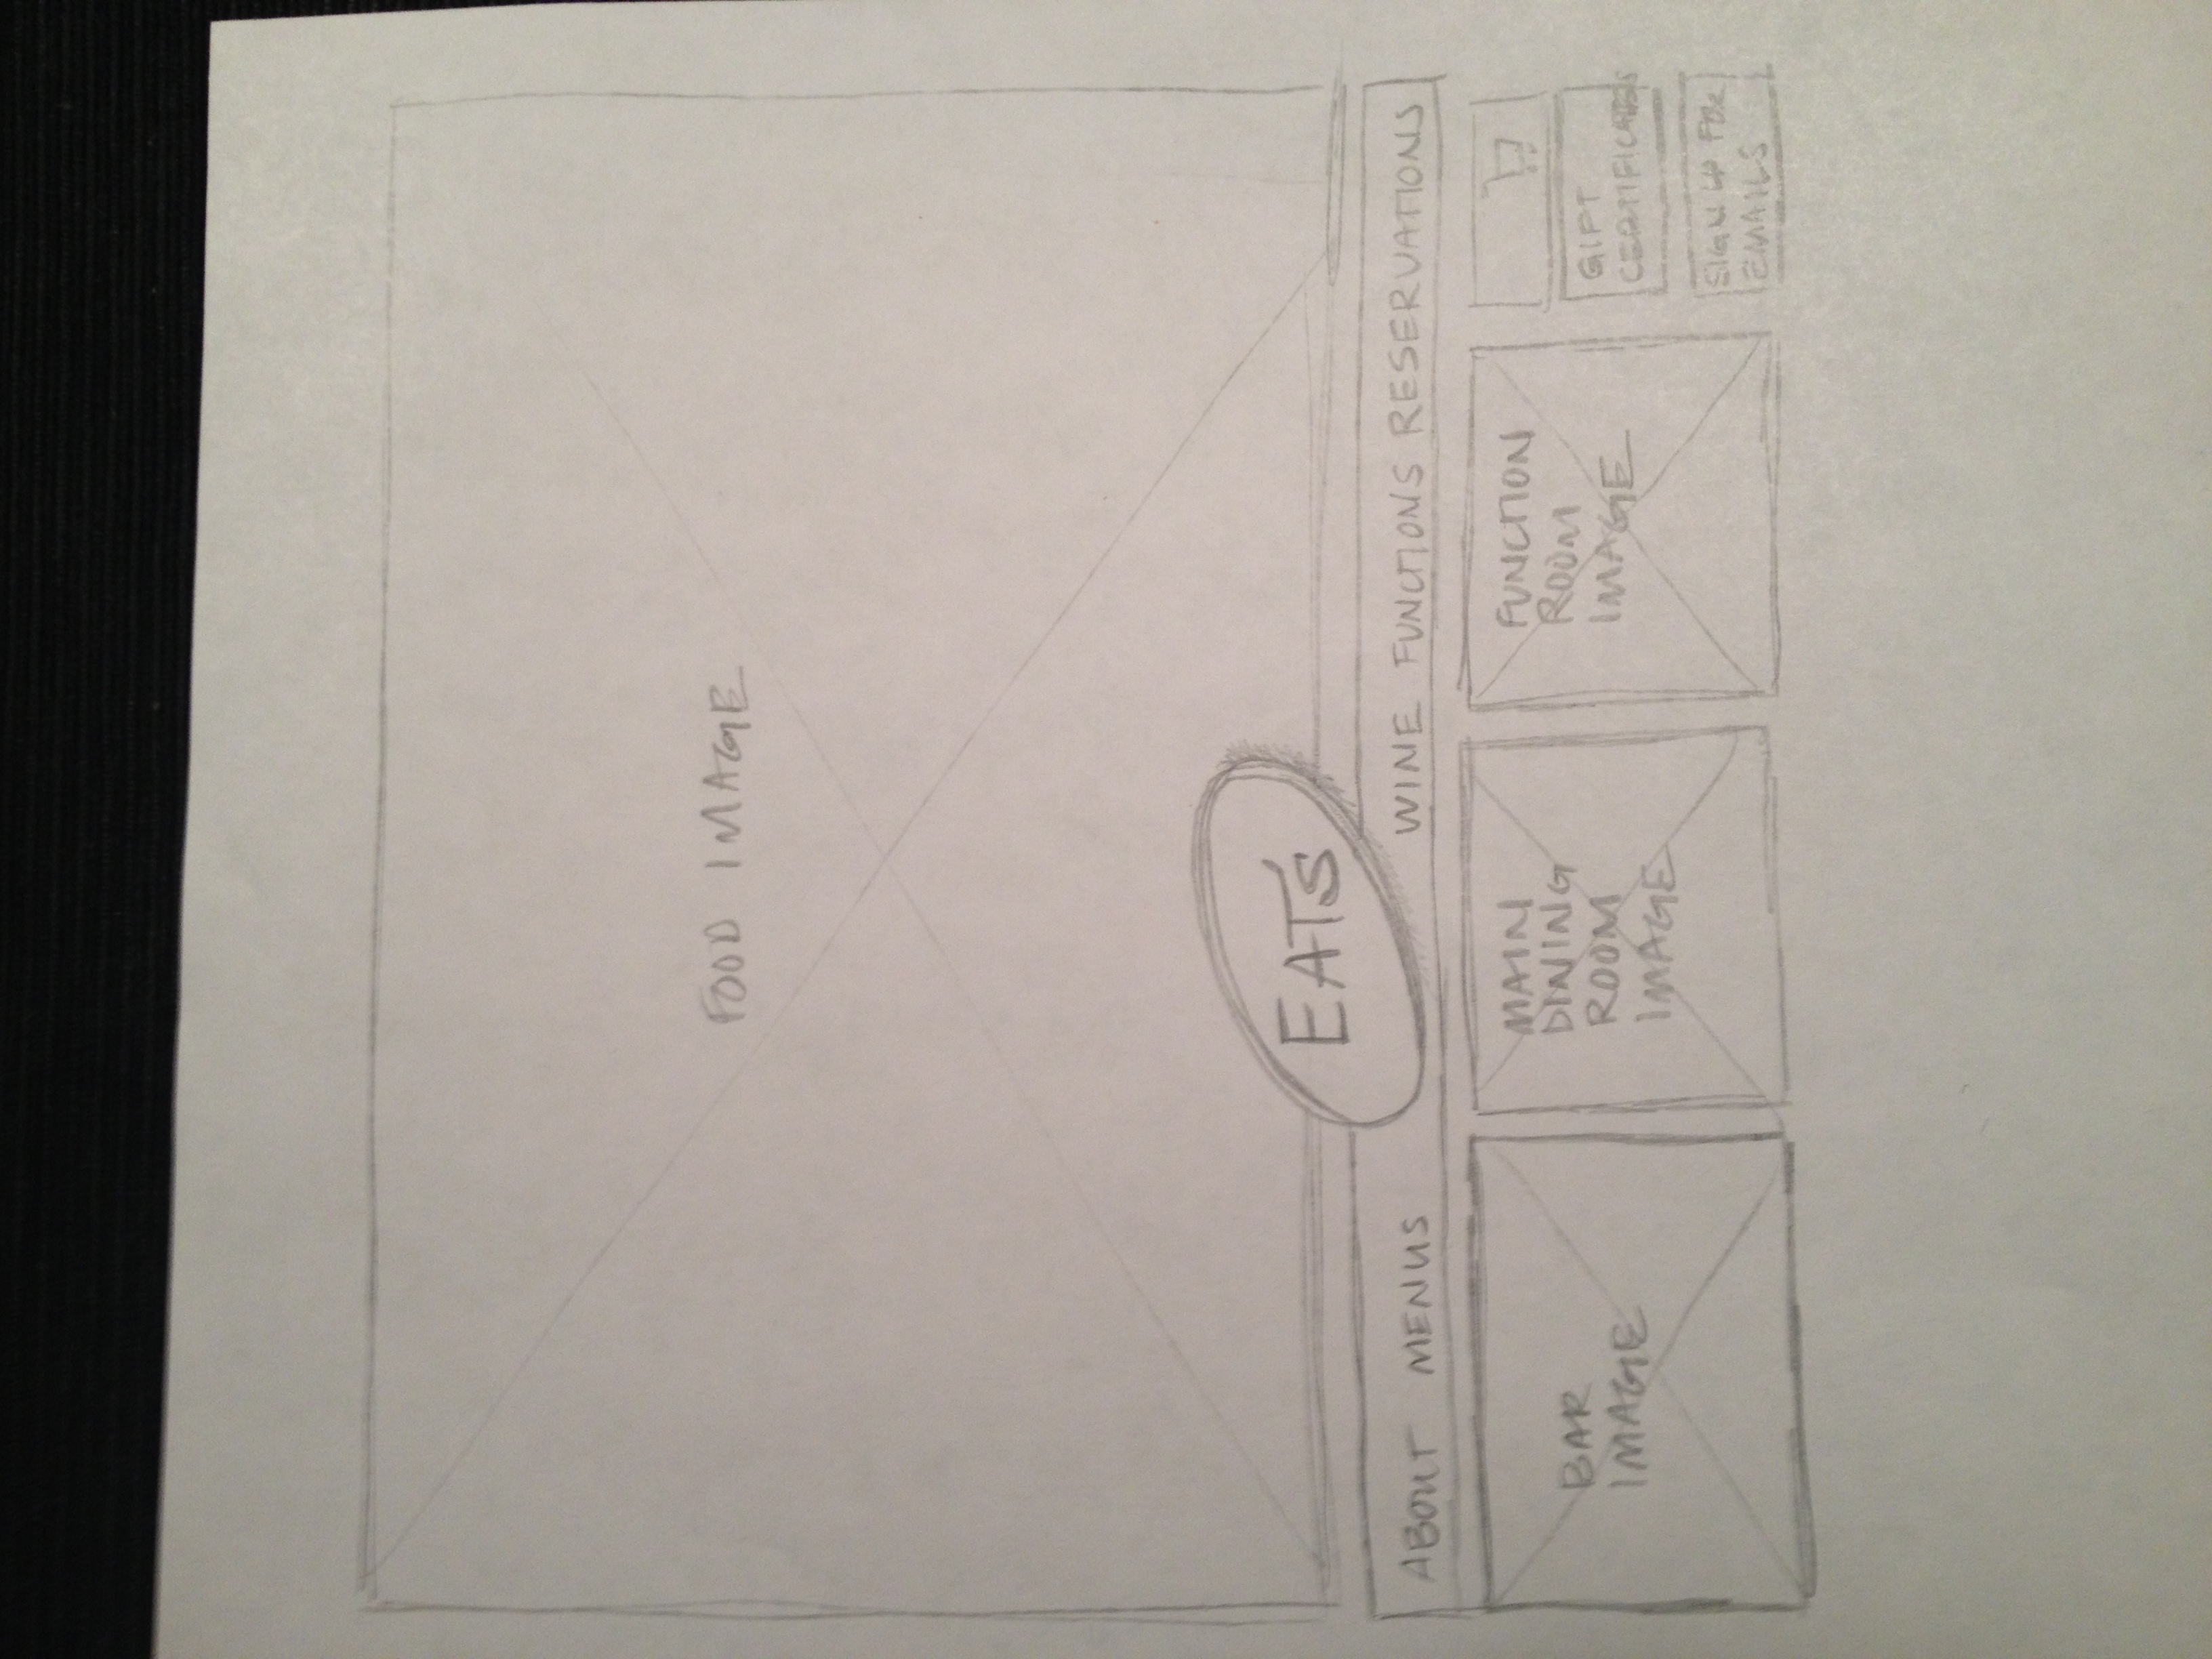 FOOD IMAGE
EATS
ABOUT MENUS WINE FUNCTIONS RESERVATIONS
BAR
IMAGE
MAIN
DINING
ROOM
IMAGE
FUNCTION
ROOM
IMAGE
GIFT
CERTIFICATES
SIGN UP FOR
EMAILS